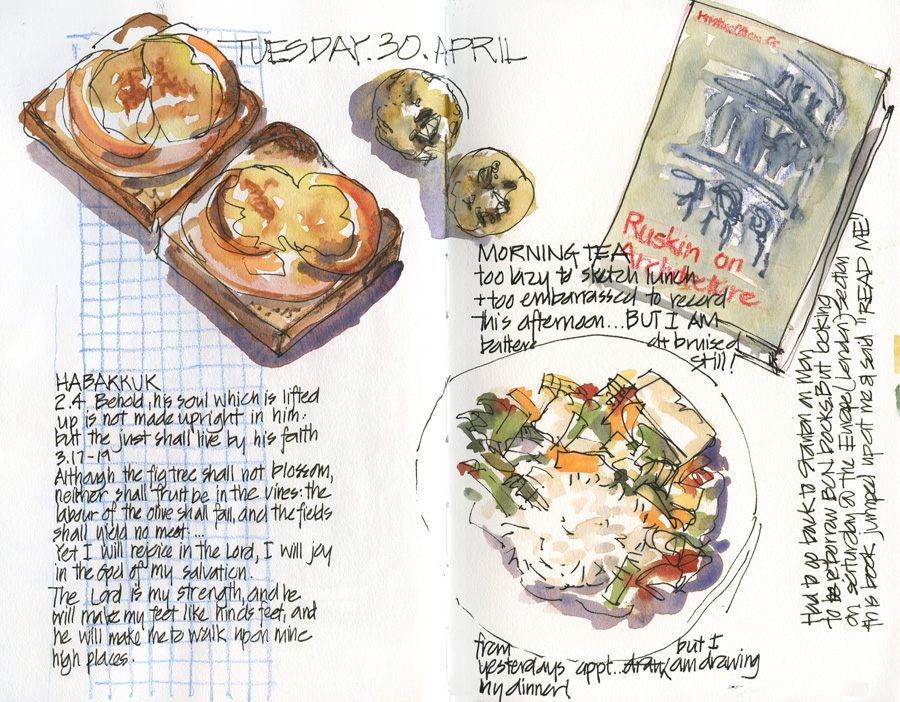 TUESDAY.30.APRIL
Ruskin on
Architecture
MORNING TEA
too lazy to sketch lunch
+ too embarrassed to record
this afternoon...BUT I AM
battere d+ bruised
still!
HABAKKUK
2.4 Behold, his soul which is lifted
up is not made upright in him:
but the just shall live by his faith
3.17-19
Although the fig tree shall not blossom,
neither shall fruit be in the vines: the
labour of the olive shall fail, and the fields
shall yield no meat ...
Yet I will rejoice in the Lord, I will joy
in the God of my salvation.
The Lord is my strength, and he
will make my feet like hinds feet, and
he will make me to walk upon mine
high places.
from but I
yesterdays appt... am drawing
my dinner!
Had to go back to on Mon
to reborrow BCN books. But looking
on Saturday @ the Europe (London) section
this book jumped up at me & said "READ ME!"